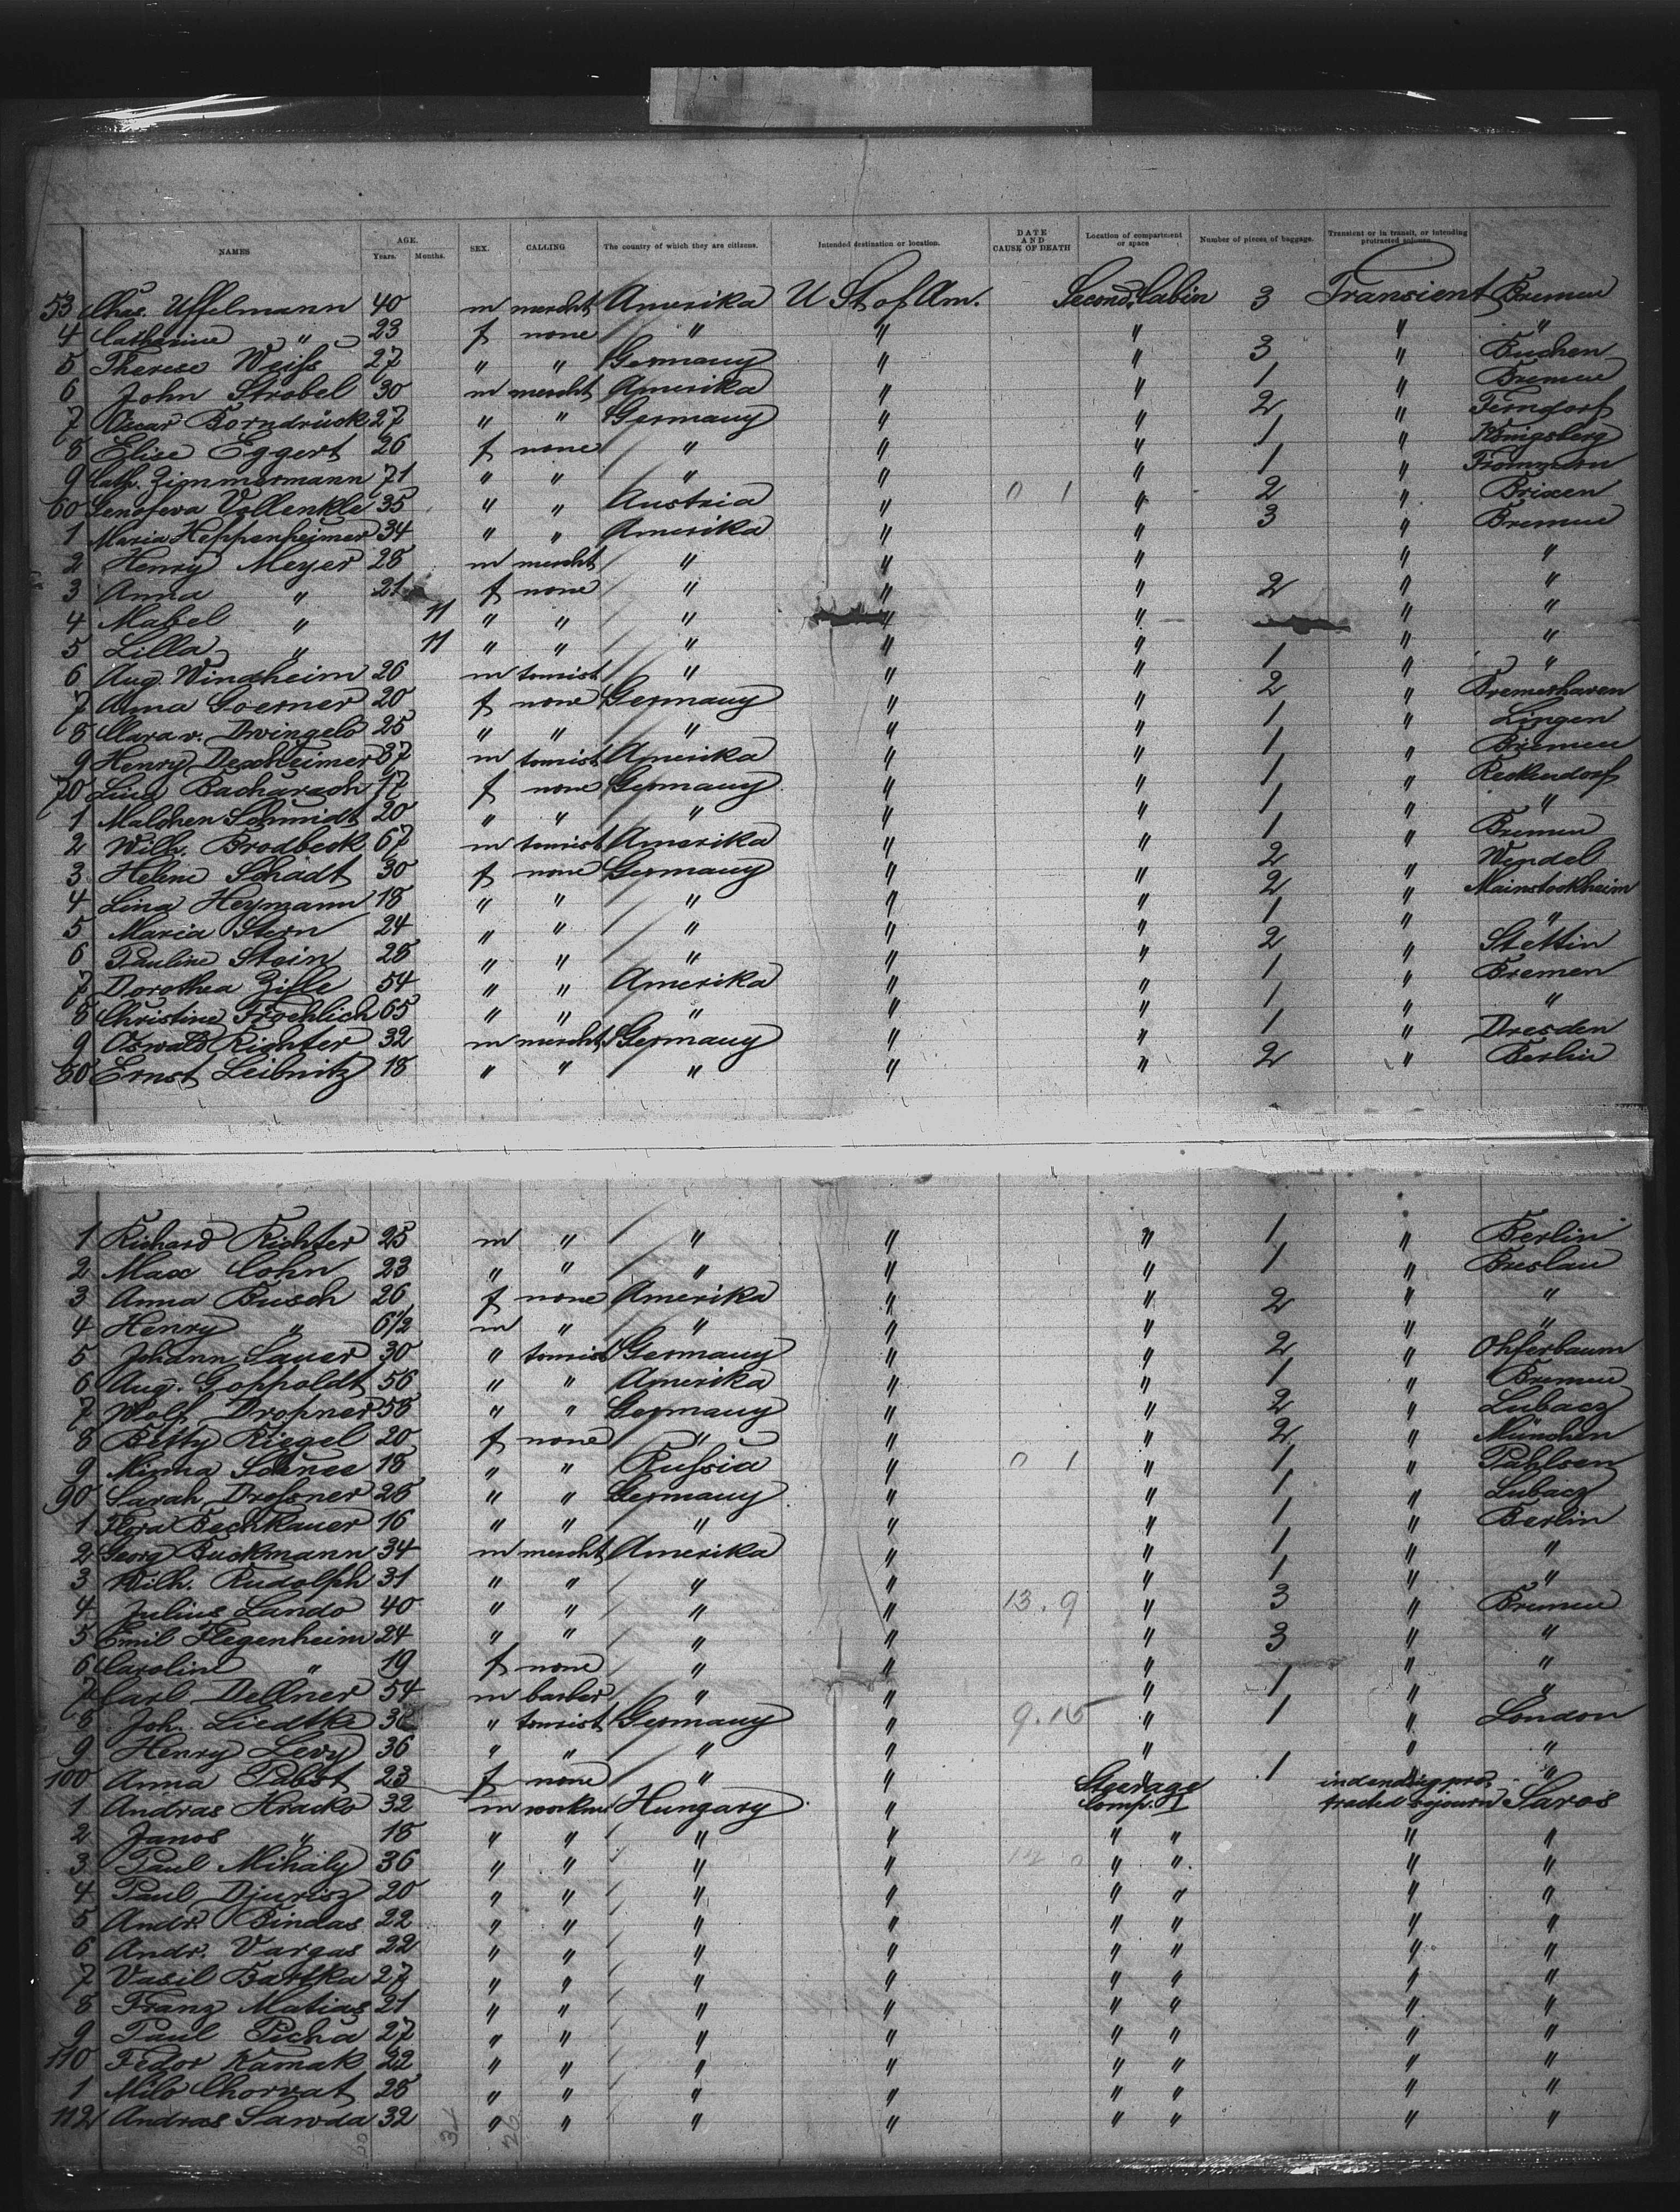 NAMES AGE. Years. Months. SEX. CALLING The country of which they are citizens. Intended destination or location. DATE AND CAUSE OF DEATH Location of compartment or space Number of pieces of baggage. Transient or in transit, or intending protracted sojourn.
53 Chas. Uffelmann 40 m mercht Amerika U St of Am. Second Cabin 3 Transient Bremen
4 Catharine " 23 f none " " " " "
5 Therese Weiß 27 " " Germany " " 3 " Buchen
6 John Strobel 30 m mercht Amerika " " 1 " Bremen
7 Oscar Borndrück 27 " " Germany " " 2 " Ferndorf
8 Elise Eggert 26 f none " " " 1 " Königsberg
9 Cath. Zimmermann 71 " " " " " 1 " Frommern
60 Genofeva Vollenkle 35 " " Austria " 0 1 " 2 " Brixen
1 Maria Heppenheimer 34 " " Amerika " " 3 " Bremen
2 Henry Meyer 28 m mercht " " " " "
3 Anna " 21 f none " " " 2 " "
4 Mabel " 11 " " " " " " "
5 Lilla " 11 " " " " " " "
6 Aug. Windheim 26 m tourist " " " 1 " "
7 Alma Goerner 20 f none Germany " " 2 " Bremerhaven
8 Clara v. Dwingelo 25 " " " " " 1 " Lingen
9 Henry Dexheimer 37 m tourist Amerika " " 1 " Bremen
70 Lina Bacharach 17 f none Germany " " 1 " Reckendorf
1 Malchen Schmidt 20 " " " " " 1 " "
2 Wilh. Brodbeck 67 m tourist Amerika " " 1 " Bremen
3 Helene Schadt 30 f none Germany " " 2 " Wendel
4 Lina Heymann 18 " " " " " 2 " Mainstockheim
5 Maria Stern 24 " " " " " 1 " "
6 Pauline Stein 28 " " " " " 2 " Stettin
7 Dorothea Zifle 54 " " Amerika " " 1 " Bremen
8 Christine Froehlich 65 " " " " " 1 " "
9 Oswald Richter 32 m mercht Germany " " 1 " Dresden
80 Ernst Leibnitz 18 " " " " " 2 " Berlin
1 Richard Richter 25 m " " " " 1 " Berlin
2 Max Cohn 23 " " " " " 1 " Breslau
3 Anna Busch 26 f none Amerika " " 2 " "
4 Henry " 6 1/2 m " " " " " "
5 Johann Sauer 30 " tourist Germany " " 2 " Ohferbaum
6 Aug. Goppoldt 56 " " Amerika " " 1 " Bremen
7 Wolf Droßner 58 " " Germany " " 2 " Lubacz
8 Betty Riegel 20 f none " " " 2 " München
9 Minna Schnee 18 " " Rußia " 0 1 " 1 " Pahlsen
90 Sarah Dreßner 28 " " Germany " " 1 " Lubacz
1 Flora Bechkauer 16 " " " " " 1 " Berlin
2 Georg Buckmann 34 m mercht Amerika " " 1 " "
3 Wilh. Rudolph 31 " " " " " 1 " "
4 Julius Lando 40 " " " " 13.9 " 3 " Bremen
5 Emil Flegenheim 24 " " " " " 3 " "
6 Carolin " 19 f none " " " " "
7 Carl Dellner 54 m barber " " " 1 " "
8 Joh. Liedtke 36 " tourist Germany " 9.15 " 1 " London
9 Henry Levy 36 " " " " " " "
100 Anna Pabst 23 f none " " " 1 " "
1 Andras Hracko 32 m workm. Hungary " Steerage Comp. I indending protracted sojourn Saros
2 Janos " 18 " " " " " " " "
3 Paul Mihaly 36 " " " " " " " "
4 Paul Djurisz 20 " " " " " " " "
5 Andr. Bindas 22 " " " " " " " "
6 Andr. Vargas 22 " " " " " " " "
7 Vasil Bartka 27 " " " " " " " "
8 Franz Matias 21 " " " " " " " "
9 Paul Picha 27 " " " " " " " "
110 Fedor Kamak 22 " " " " " " " "
1 Milo Chorvat 28 " " " " " " " "
112 Andras Sawda 32 " " " " " " " "